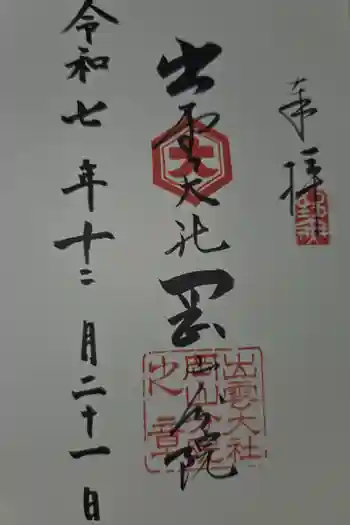 奉拝
出雲大社岡山分院
令和七年十二月二十一日
大
出雲大社
岡山分院
之章